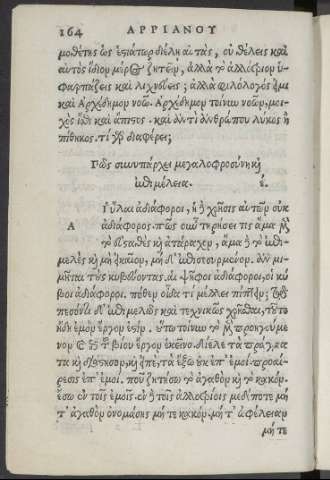 164 ΑΡΡΙΑΝΟΥ
μοθέτης ὡς ἑστιάτωρ διέλῃ αὐτὰς, οὐ θέλεις καὶ
αὐτὸς ἴδιον μέρος ζητεῖν, ἀλλὰ τὸ ἀλλότριον ὑ-
φαρπάζεις καὶ λιχνεύεις; ἀλλὰ φιλόλογός εἰμι
καὶ Ἀρχέδημον νοῶ. Ἀρχέδημον τοίνυν νοῶν, μοι-
χὸς ἴσθι καὶ ἄπιστος. καὶ ἀντὶ ἀνθρώπου λύκος ἢ
πίθηκος. τί γὰρ διαφέρει;
Πῶς συνυπάρχει μεγαλοφροσύνη κὴ
ἐπιμέλεια. έ.
Αἱ ὗλαι ἀδιάφοροι, ἡ δὲ χρῆσις αὐτῶν οὐκ
Α ἀδιάφορος. πῶς οὖν τηρήσει τις ἅμα μὲν
τὸ εὐσταθὲς κὴ ἀτάραχον, ἅμα δὲ τὸ ἐπι-
μελὲς κὴ μὴ εἰκαῖον, μὴ δ' ἐπισεσυρμένον. ἂν μι-
μῆται τοὺς κυβεύοντας. αἱ ψῆφοι ἀδιάφοροι, οἱ κύ
βοι ἀδιάφοροι. πόθεν οἶδα τί μέλλει πίπτειν; τῷ δὲ
πεσόντι δ' ἐπιμελῶς καὶ τεχνικῶς χρῆσθαι, τοῦτο
ἤδη ἐμὸν ἔργον ἐστίν. οὕτω τοίνυν τὸ μὲν προηγούμε
νον καὶ ἐπὶ τοῦ βίου ἔργον ἐκεῖνο. δίελε τὰ πράγμα
τα κὴ διάστησον, κὴ εἰπὲ, τὰ ἔξω οὐκ ἐπ' ἐμοί. προαί-
ρεσις ἐπ' ἐμοί. ποῦ ζητήσω τὸ ἀγαθὸν κὴ τὸ κακόν.
ἔσω ἐν τοῖς ἐμοῖς. ἐν δὲ τοῖς ἀλλοτρίοις μηδέποτε μή
τ' ἀγαθὸν ὀνομάσῃς μή τε κακόν. μή τ' ὠφέλειαν
μή τε